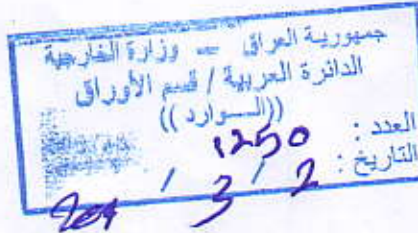 جمهورية العراق – وزارة الخارجية
الدائرة العربية / قسم الأوراق
((الـــوارد))
العدد : 1250
التاريخ : 2 / 3 /